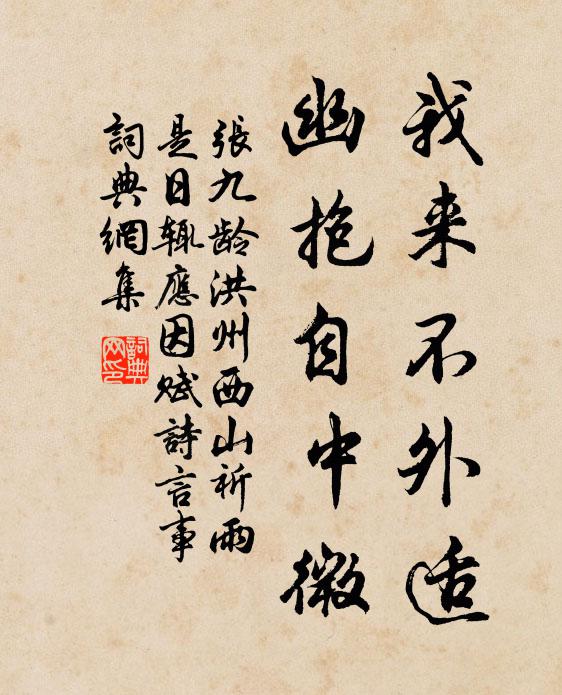 我来不外适
幽抱自中微
張九龄洪州西山祈雨
是日辄應因赋詩言事
詞典網集
詞典网印